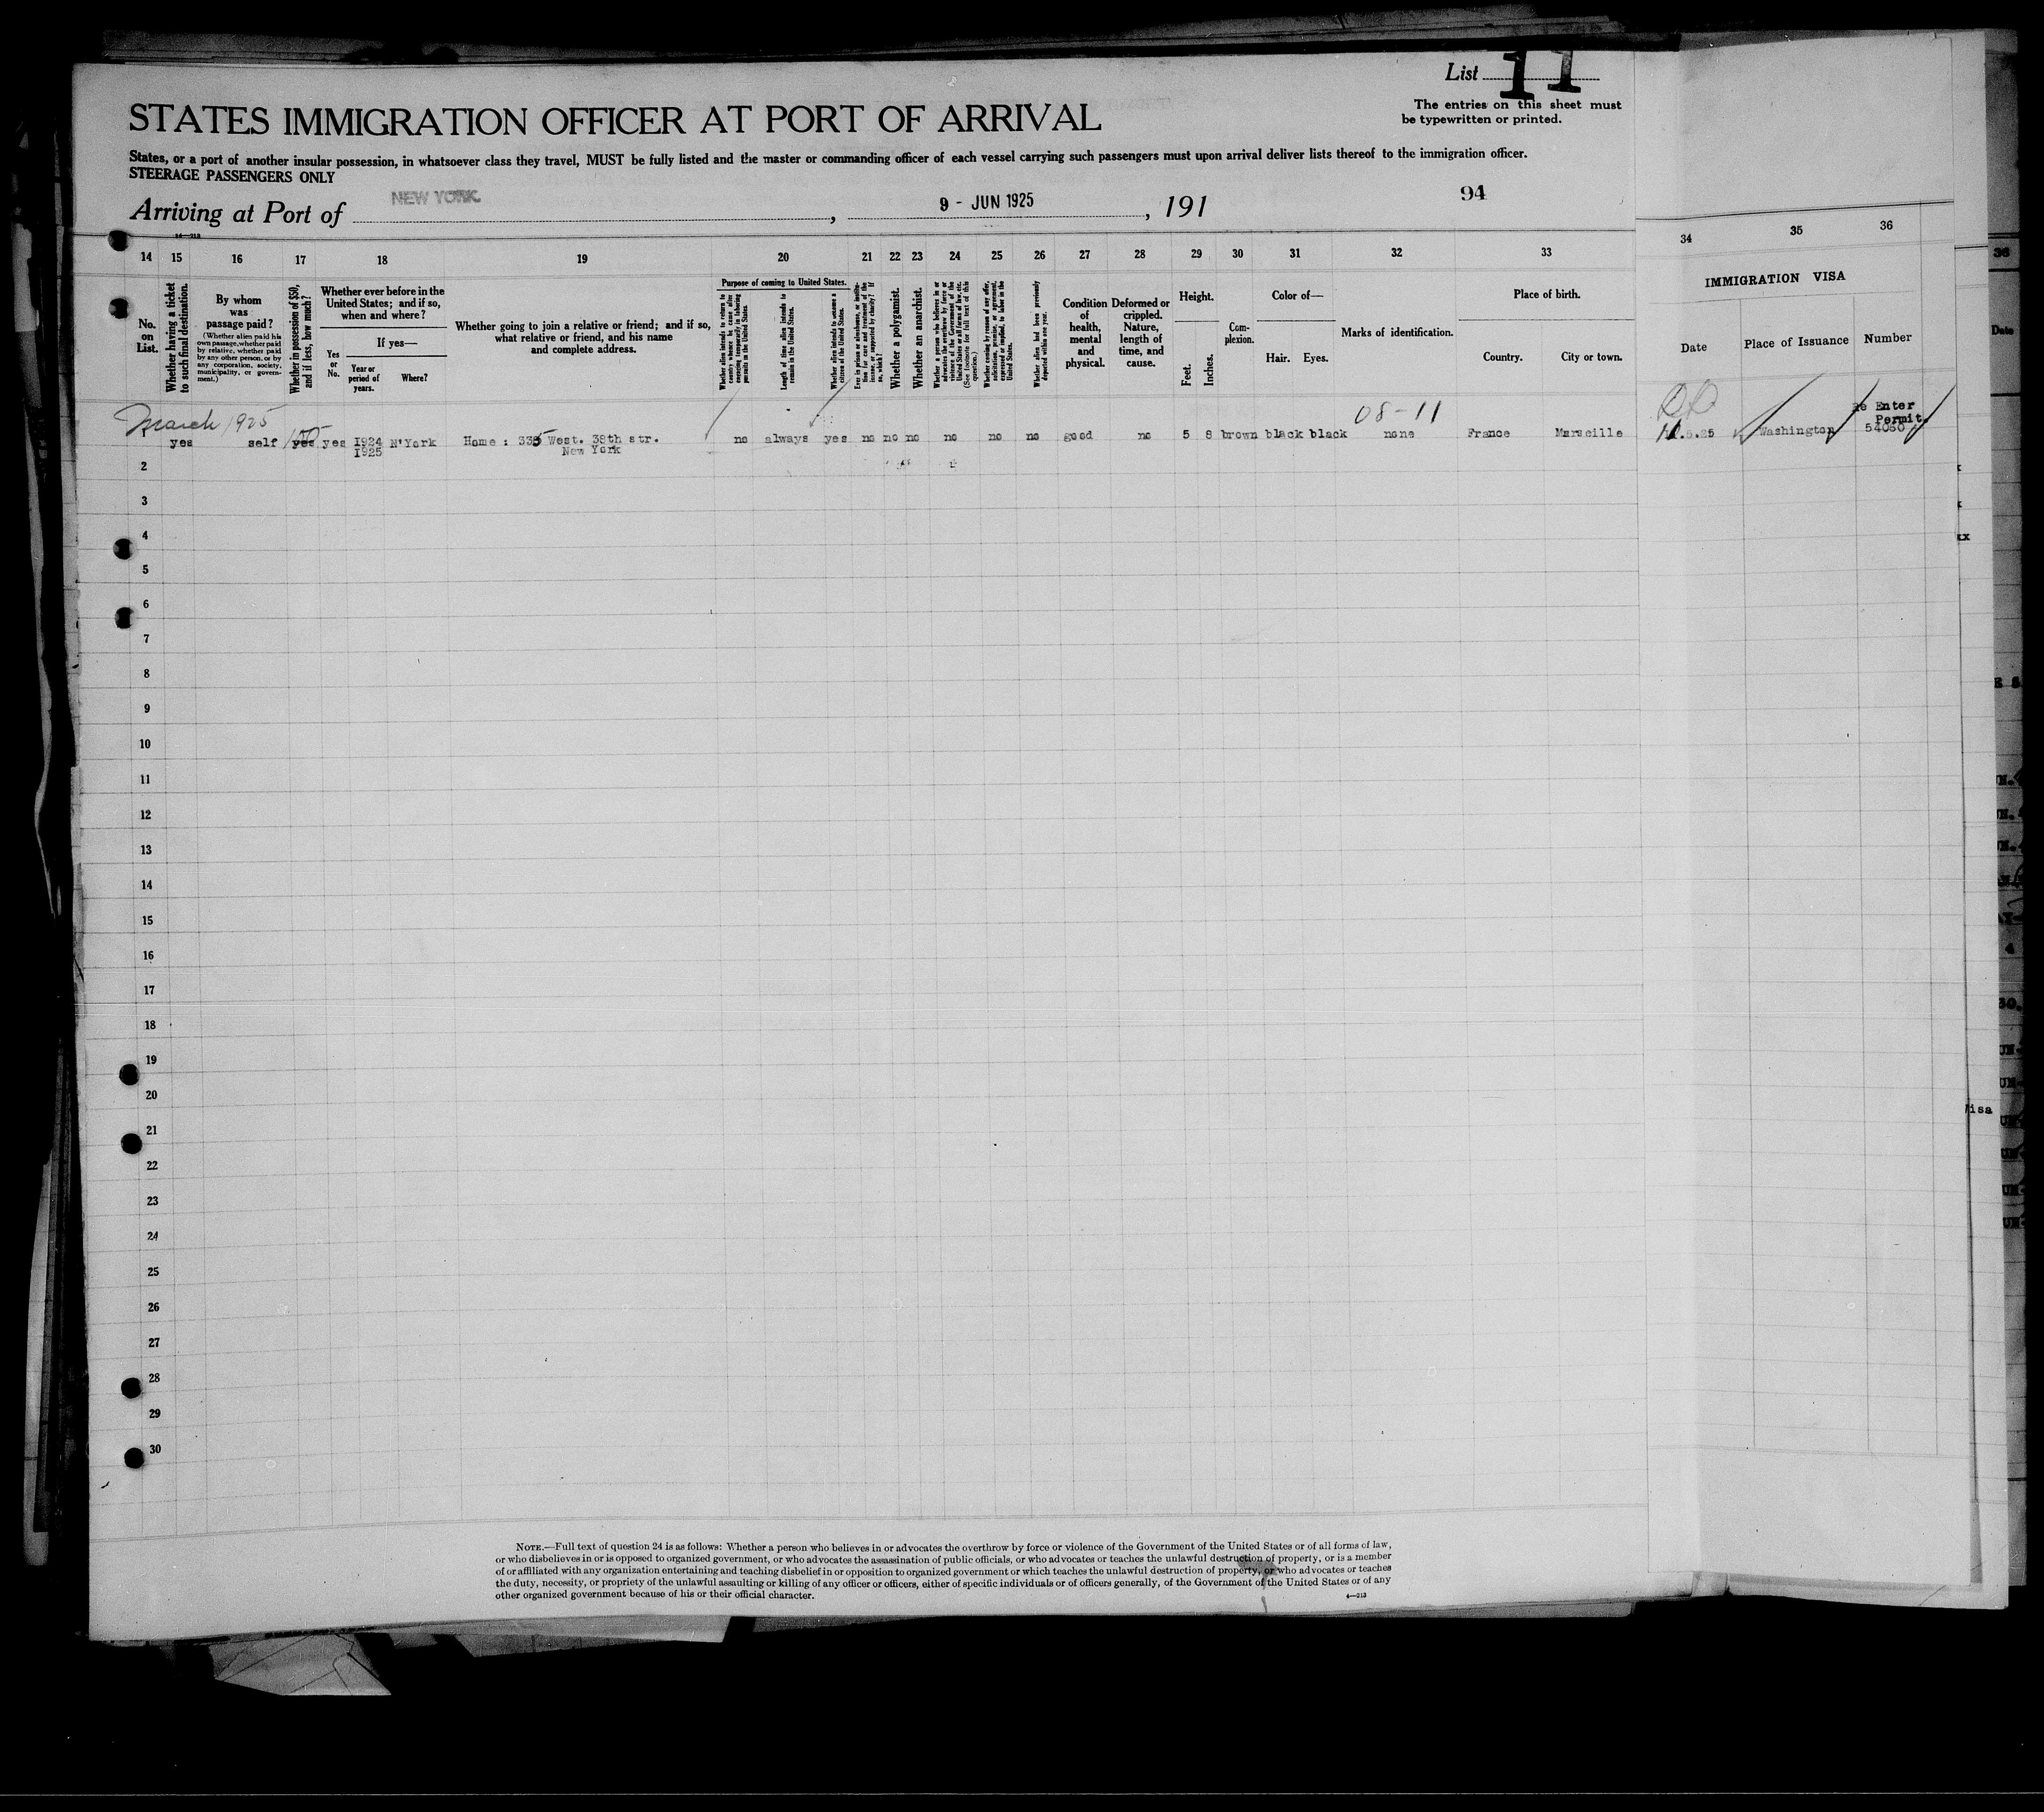 List 11
The entries on this sheet must
be typewritten or printed.
STATES IMMIGRATION OFFICER AT PORT OF ARRIVAL
States, or a port of another insular possession, in whatsoever class they travel, MUST be fully listed and the master or commanding officer of each vessel carrying such passengers must upon arrival deliver lists thereof to the immigration officer.
STEERAGE PASSENGERS ONLY
Arriving at Port of NEW YORK, 9 - JUN 1925, 191
94
14 15 16 17 18 19 20 21 22 23 24 25 26 27 28 29 30 31 32 33 34 35 36
No. on List.
Whether having a ticket to such final destination.
By whom was passage paid?
(Whether alien paid his own passage, whether paid by relative, whether paid by any other person, or by any corporation, society, municipality, or government.)
Whether in possession of $50, and if less, how much?
Whether ever before in the United States; and if so, when and where?
Yes or No.
If yes—
Year or period of years.
Where?
Whether going to join a relative or friend; and if so, what relative or friend, and his name and complete address.
Purpose of coming to United States.
Whether alien intends to return to country whence he came after engaging temporarily in laboring pursuits in the United States.
Length of time alien intends to remain in the United States.
Whether alien intends to become a citizen of the United States.
Ever in prison or almshouse, or institution for care and treatment of the insane, or supported by charity? If so, which?
Whether a polygamist.
Whether an anarchist.
Whether a person who believes in or advocates the overthrow by force or violence of the Government of the United States or all forms of law, etc. (See footnote for full text of this question.)
Whether coming by reason of any offer, solicitation, promise, or agreement, expressed or implied, to labor in the United States.
Whether alien had been previously deported within one year.
Condition of health, mental and physical.
Deformed or crippled. Nature, length of time, and cause.
Height.
Feet.
Inches.
Complexion.
Color of—
Hair. Eyes.
Marks of identification.
Place of birth.
Country.
City or town.
IMMIGRATION VISA
Date
Place of Issuance
Number
March 1925
08-11
Re Enter
Permit
1 yes self yes yes 1924 N'York Home : 335 West. 38th str. no always yes no no no no no no good no 5 8 brown black black none France Marseille .5.25 Washington 54080
1925 New York
2
3
4
5
6
7
8
9
10
11
12
13
14
15
16
17
18
19
20
21
22
23
24
25
26
27
28
29
30
NOTE.—Full text of question 24 is as follows: Whether a person who believes in or advocates the overthrow by force or violence of the Government of the United States or of all forms of law,
or who disbelieves in or is opposed to organized government, or who advocates the assassination of public officials, or who advocates or teaches the unlawful destruction of property, or is a member
of or affiliated with any organization entertaining and teaching disbelief in or opposition to organized government or which teaches the unlawful destruction of property, or who advocates or teaches
the duty, necessity, or propriety of the unlawful assaulting or killing of any officer or officers, either of specific individuals or of officers generally, of the Government of the United States or of any
other organized government because of his or their official character.
4—213